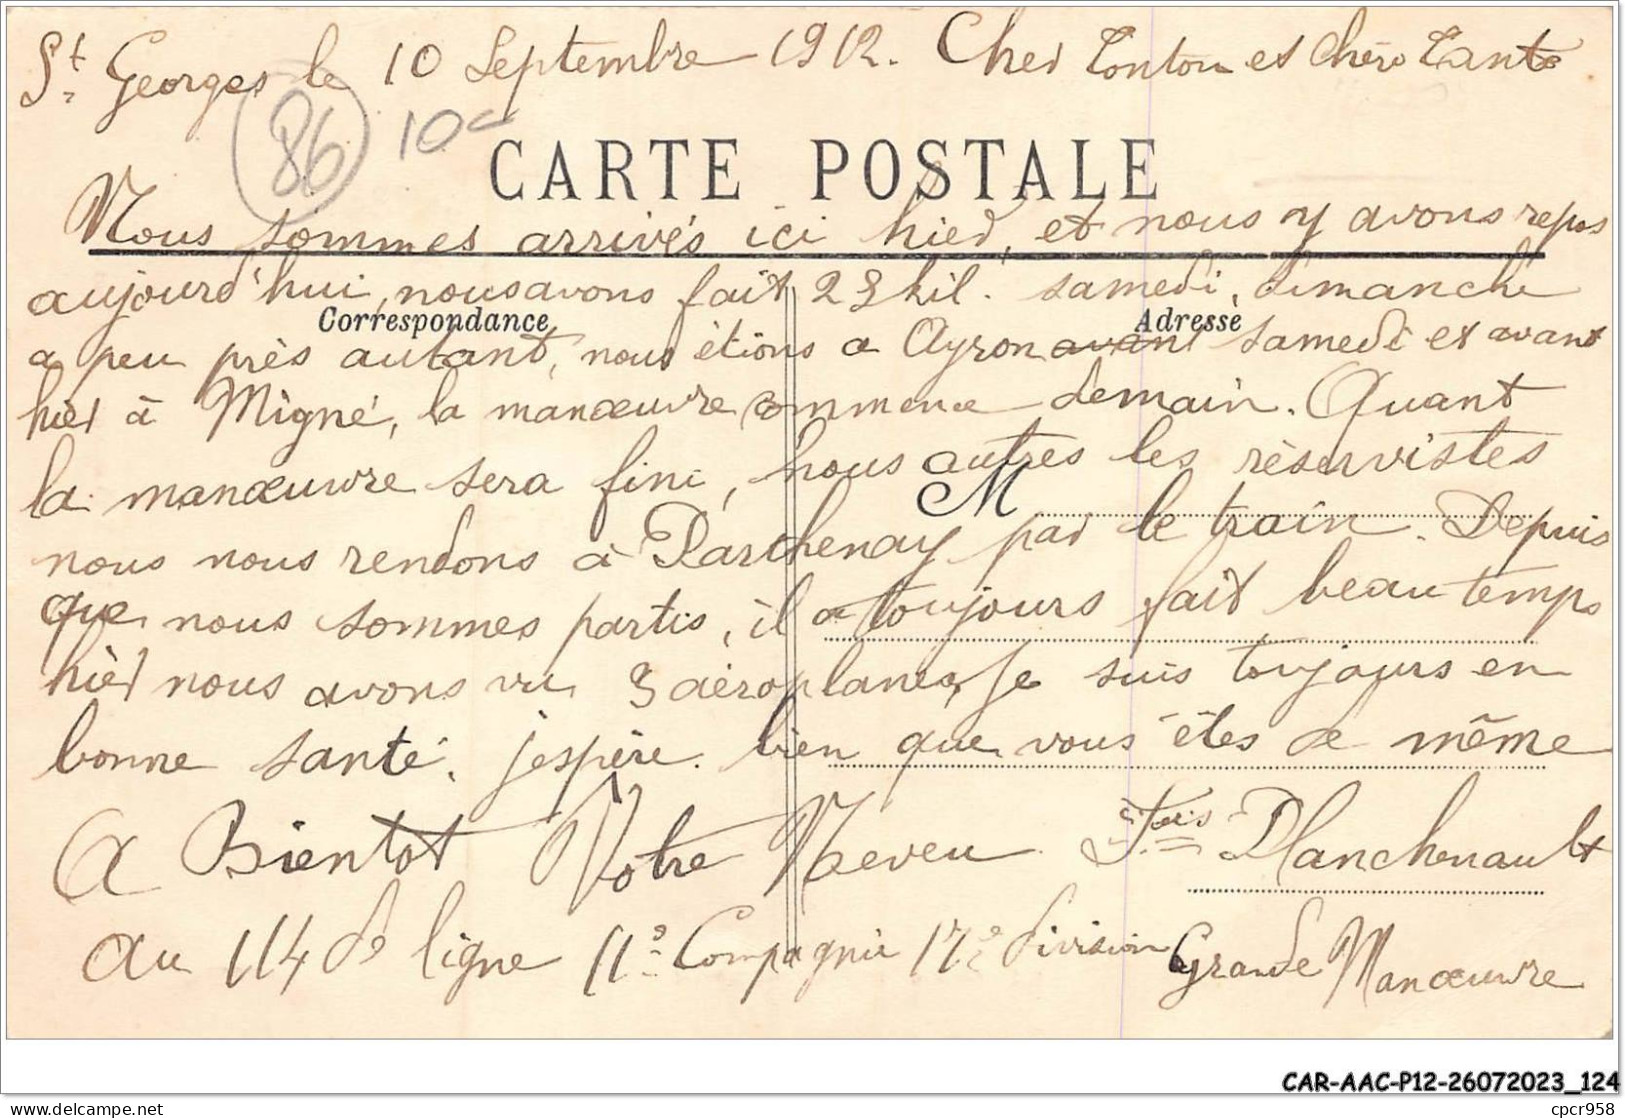 St Georges le 10 Septembre 1912. Cher Tonton et chère Tante
86 10c
CARTE POSTALE
Nous sommes arrivés ici hier, et nous y avons repos
aujourd'hui, nous avons fait 23 kil. samedi, dimanche
Correspondance Adresse
a peu près autant, nous étions a Ayron avant samedi et avant
hier à Migné, la manœuvre commence demain. Quant
la manœuvre sera fini, nous autres les réservistes
M
nous nous rendons à Parthenay par le train. Depuis
que nous sommes partis, il a toujours fait beau temps
hier nous avons vu 3 aéroplanes, Je suis toujours en
bonne santé, j'espère bien que vous êtes de même
A Bientot Votre Neveu Planchenault
au 114 de ligne 11e Compagnie 17e division Grande Manœuvre
CAR-AAC-P12-26072023_124
delcampe.net
cpcr958